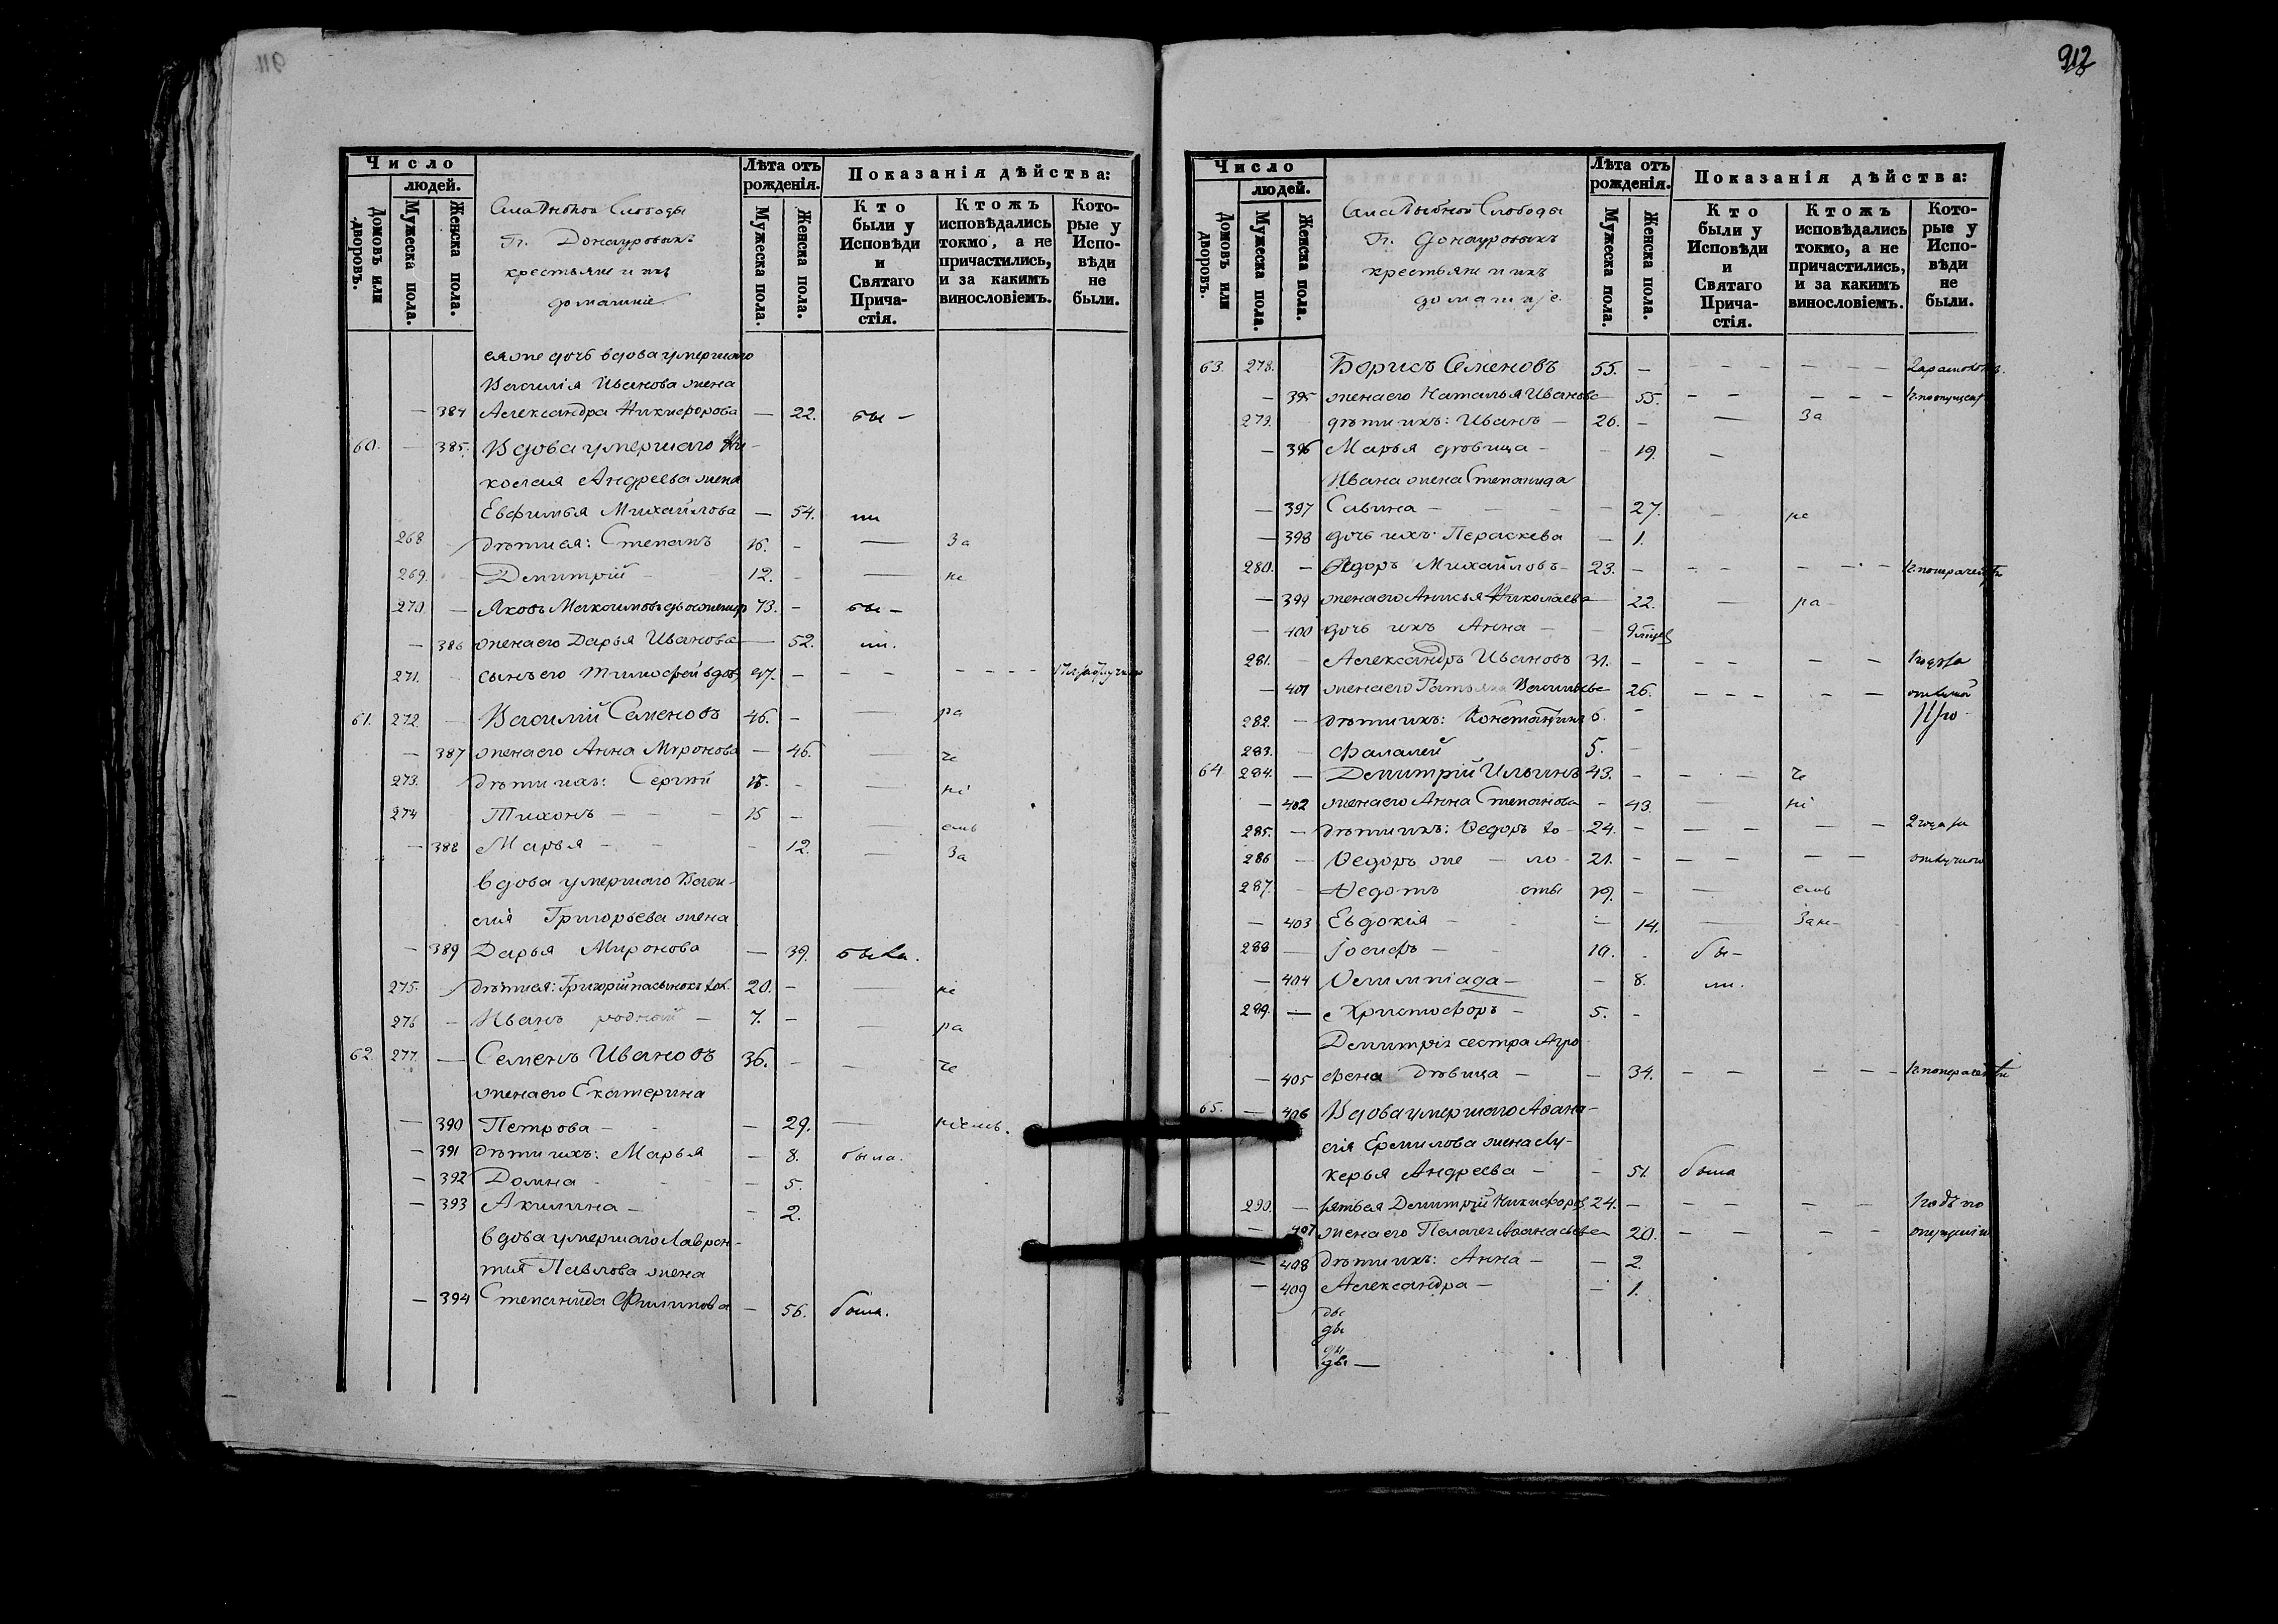 911
Число
людей.
Домовъ или дворовъ.
Мужеска пола.
Женска пола.
Слободы
Гг. Донауровыхъ
крестьяне и ихъ
домашніе
Лѣта отъ рожденія.
Мужеска пола.
Женска пола.
Показанія дѣйства:
Кто были у Исповѣди и Святаго Причастія.
Ктожъ исповѣдались токмо, а не причастились, и за какимъ винословіемъ.
Которые у Исповѣди не были.
ея же дочь вдова умершаго
Василія Иванова жена
— 384 Александра Никифорова — 22. бы-
60. — 385. Вдова умершаго Ни-
колая Андреева жена
Евфимья Михайлова — 54. ли
268 дѣти ея: Степанъ 16. - — За
269. Димитрій 12. - — не
270 — Яковъ Максимовъ 73. - бы-
— 386 жена его Дарья Иванова — 52. ли.
271. сынъ его Тимофей вдов 47. - - - - - - -
61. 272 Василій Семеновъ 46. - — ра
— 387 жена его Анна Миронова — 46. — че
273. дѣти ихъ: Сергій 18. - — ні
274 Тихонъ — 15 - — емъ
— 388 Марья - - 12. — За
вдова умершаго Васи-
лія Григорьева жена
— 389 Дарья Миронова — 39. была.
275. дѣти ея: Григорій пасынокъ хол. 20. - — не
276 — Иванъ родной — 7. - — ра
62. 277. — Семенъ Ивановъ 36. - — че
жена его Екатерина
— 390 Петрова — - 29. — ніемъ.
— 391 дѣти ихъ: Марья - 8. была.
— 392 Домна - - 5.
— 393 Акилина — - 2.
вдова умершаго Лаврен-
тія Павлова жена
— 394 Степанида Филипова — 56. была.
912
Число
людей.
Домовъ или дворовъ.
Мужеска пола.
Женска пола.
Слободы
Гг. Донауровыхъ
крестьяне и ихъ
домашніе
Лѣта отъ рожденія.
Мужеска пола.
Женска пола.
Показанія дѣйства:
Кто были у Исповѣди и Святаго Причастія.
Ктожъ исповѣдались токмо, а не причастились, и за какимъ винословіемъ.
Которые у Исповѣди не были.
63. 278. Борисъ Семеновъ 55. - - - - - - -
— 395 жена его Наталья Иванова 55. - - - - -
279. дѣти ихъ: Иванъ — 26. - — За
— 396 Марья дѣвица - - 19. -
Ивана жена Степанида
— 397 Савина - - 27. - не
— 398 дочь ихъ Параскева - 1.
280. — Ѳедоръ Михайловъ 23. - - - - - -
— 399 жена его Анисья Николаева 22. — ра
— 400 дочь ихъ Анна -
281. Александръ Ивановъ 31. - - - - -
— 401 жена его Татьяна Васильева 26. - - - - -
282. — дѣти ихъ: Константинъ 6. -
283. — Фалалей 5. -
64. 284. — Димитрій Ильинъ 43. - - - че
— 402 жена его Анна Степанова - 43. — ні
285. — дѣти ихъ: Ѳедоръ хо- 24. - - - - - 2 года
286 — Ѳедоръ же — ло 21. - - - - -
287. Ѳедотъ сты 19. - — емъ
— 403 Евдокія - - 14. — За не-
288 — Іосифъ — 10. . бы-
— 404 Олимпіада — - 8. ли.
289. — Христофоръ - 5. -
Димитрія сестра Агро
— 405 фена дѣвица — - 34. - - - - -
65. — 406 Вдова умершаго Аѳана-
сія Ермилова жена Лу-
керья Андреева — - 51. была
290. — зять ея Димитрій Никифоровъ 24. - - - - - 1 годъ по
— 407 жена его Пелагея Аѳанасьева 20. - - - - опущенію
— 408 дѣти ихъ: Анна — - 2.
— 409 Александра — - 1.